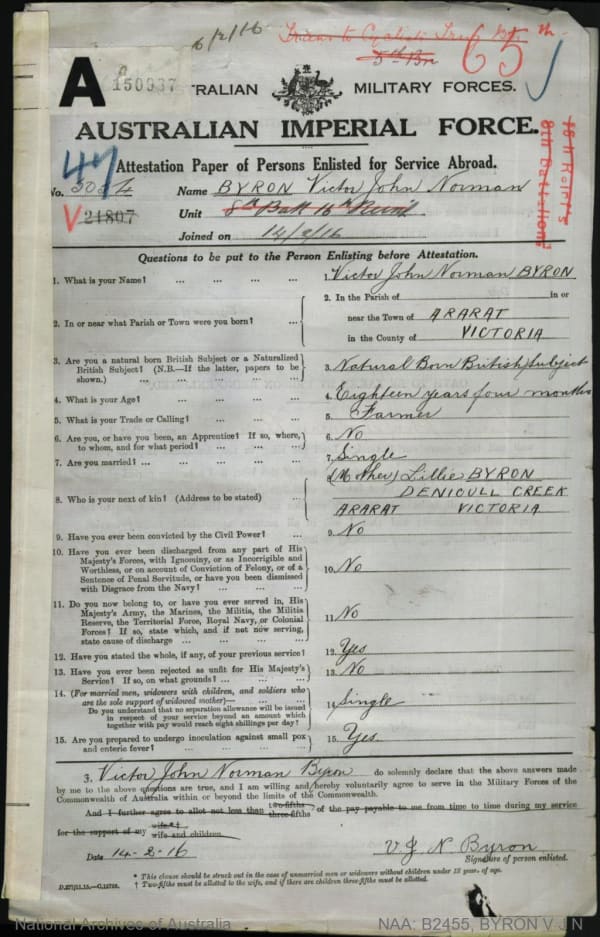 6/2/16
Trans to Cyclist
65th
5th Bn
A
150937
AUSTRALIAN MILITARY FORCES.
AUSTRALIAN IMPERIAL FORCE.
16th Reinfts
8th Battalion
47
Attestation Paper of Persons Enlisted for Service Abroad.
No. Name BYRON Victor John Norman
V 21807 Unit 8th Batt 16th Reinf
Joined on 14/2/16
Questions to be put to the Person Enlisting before Attestation.
1. What is your Name? ... ... ... ... 1. Victor John Norman BYRON
2. In or near what Parish or Town were you born? ... 2. In the Parish of in or
near the Town of ARARAT
in the County of VICTORIA
3. Are you a natural born British Subject or a Naturalized
British Subject? (N.B.—If the latter, papers to be
shown.) ... ... ... ... ... 3. Natural Born British Subject
4. What is your Age? ... ... ... ... 4. Eighteen years four months
5. What is your Trade or Calling? ... ... ... 5. Farmer
6. Are you, or have you been, an Apprentice? If so, where,
to whom, and for what period? ... ... ... 6. No
7. Are you married? ... ... ... ... 7. Single
8. Who is your next of kin? (Address to be stated) ... (Mother) Lillie BYRON
DENICULL CREEK
ARARAT VICTORIA
9. Have you ever been convicted by the Civil Power? ... 9. No
10. Have you ever been discharged from any part of His
Majesty's Forces, with Ignominy, or as Incorrigible and
Worthless, or on account of Conviction of Felony, or of a
Sentence of Penal Servitude, or have you been dismissed
with Disgrace from the Navy? ... ... ... 10. No
11. Do you now belong to, or have you ever served in, His
Majesty's Army, the Marines, the Militia, the Militia
Reserve, the Territorial Force, Royal Navy, or Colonial
Forces? If so, state which, and if not now serving,
state cause of discharge ... ... ... ... 11. No
12. Have you stated the whole, if any, of your previous service? 12. Yes
13. Have you ever been rejected as unfit for His Majesty's
Service? If so, on what grounds? ... ... ... 13. No
14. (For married men, widowers with children, and soldiers who
are the sole support of widowed mother)—
Do you understand that no separation allowance will be issued
in respect of your service beyond an amount which
together with pay would reach eight shillings per day? 14. Single
15. Are you prepared to undergo inoculation against small pox
and enteric fever? ... ... ... ... 15. Yes
I, Victor John Norman Byron do solemnly declare that the above answers made
by me to the above questions are true, and I am willing and hereby voluntarily agree to serve in the Military Forces of the
Commonwealth of Australia within or beyond the limits of the Commonwealth.
And I further agree to allot not less than two-fifths three-fifths of the pay payable to me from time to time during my service
for the support of my wife*† wife and children.
Date 14-2-16 V J N Byron
Signature of person enlisted.
* This clause should be struck out in the case of unmarried men or widowers without children under 18 years of age.
† Two-fifths must be allotted to the wife, and if there are children three-fifths must be allotted.
National Archives of Australia NAA: B2455, BYRON V J N